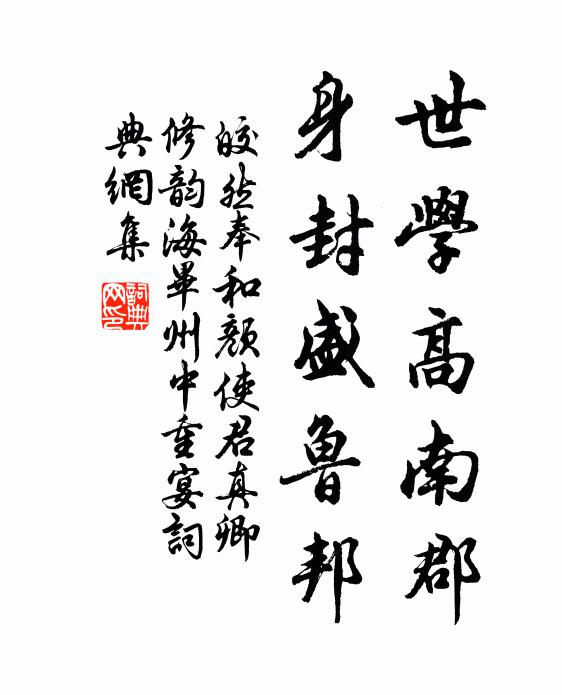 世學高南郡
身封盛魯邦
皎然奉和顏使君真卿
修韵海畢州中重宴詞
典網集
詞典网印